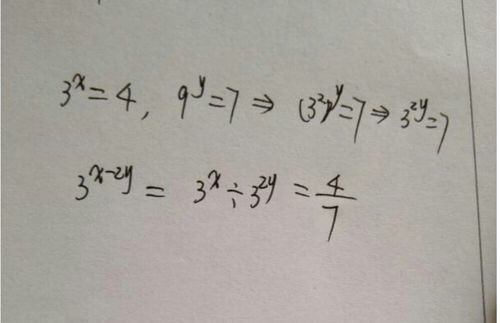 3^x = 4, 9^y = 7 ⇒ (3^2)^y = 7 ⇒ 3^{2y} = 7
3^{x-2y} = 3^x ÷ 3^{2y} = 4/7